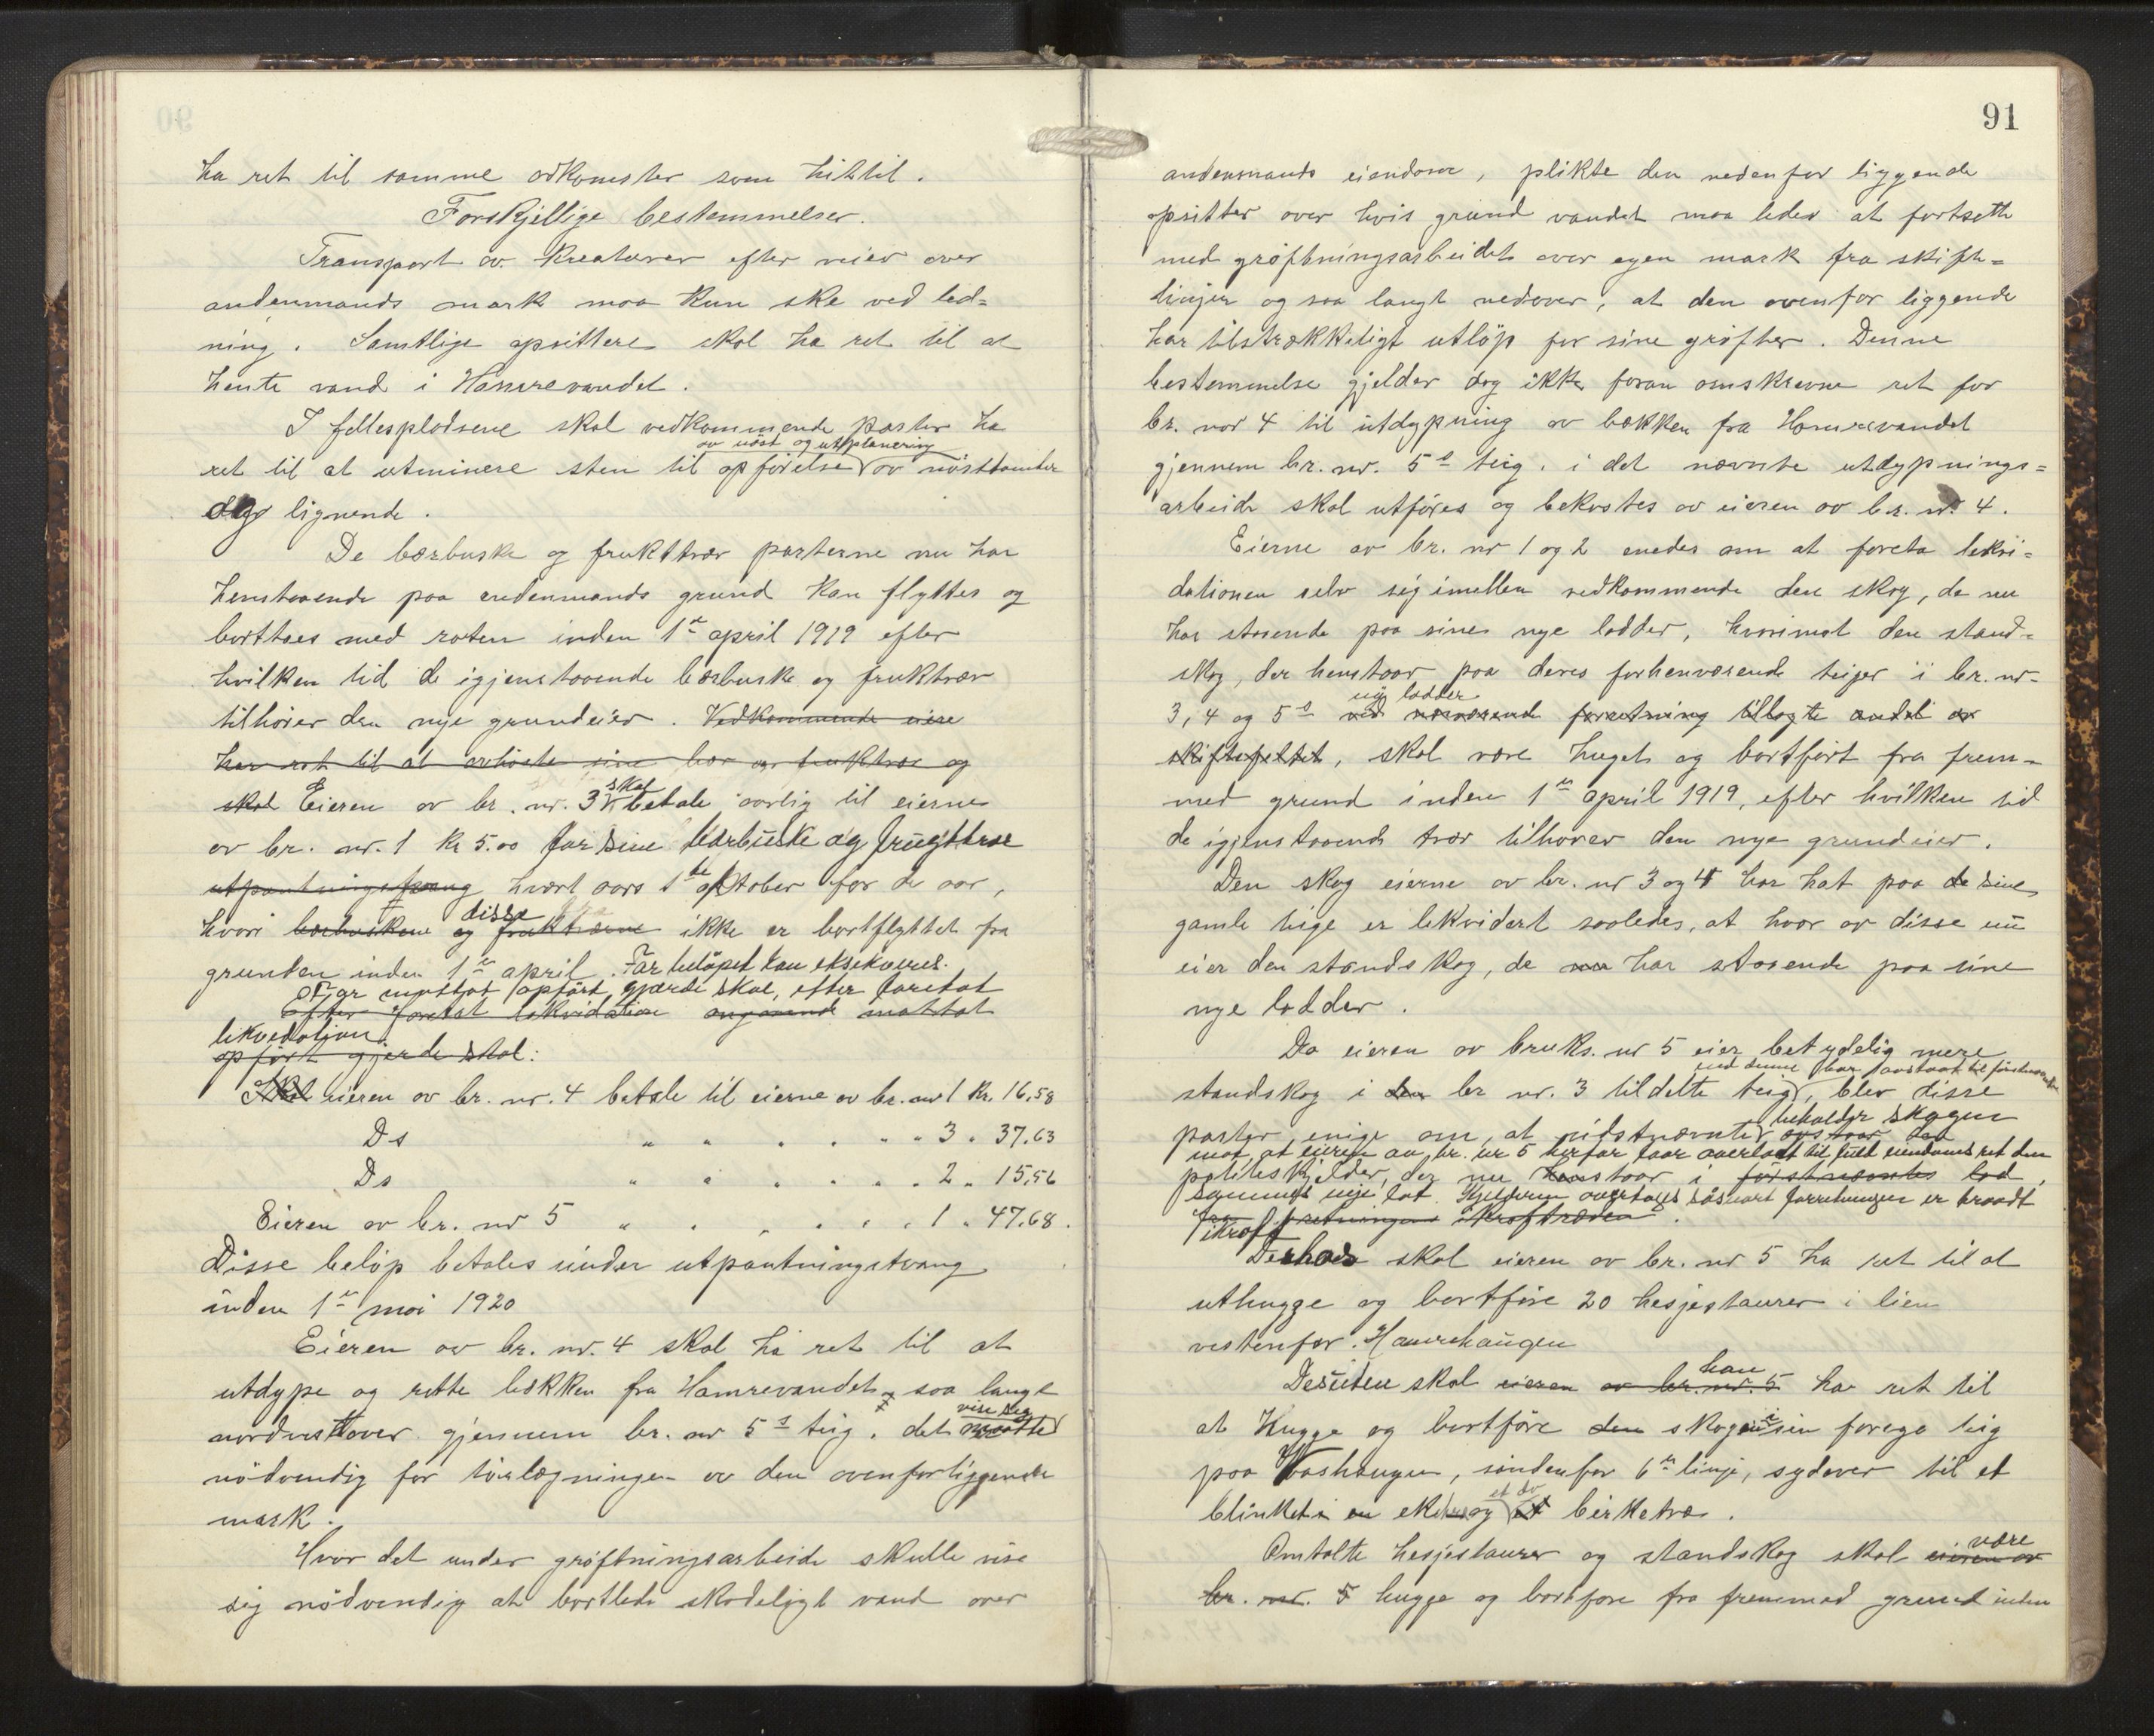 ha ret til samme adkomster som hittil.
Forskjellige bestemmelser.
Transport av kreaturer efter veier over
andenmands mark maa kun ske ved led=
ning. Samtlige opsittere skal ha ret til at
hente vand i Hamrevandet.
I fellespladsene skal vedkommende parter ha
av nöst og utplanering
ret til at utminere sten til opförelse av nösttomter
og lignende.
De bærbuske og frukttrær parterne nu har
henstaaende paa andenmands grund kan flyttes og
borttaes med roten inden 1ste april 1919 efter
hvilken tid de igjenstaaende bærbuske og frukttrær
tilhörer den nye grundeier. Vedkommende eiere
har ret til at avhöste sine bær og frukttrær og
skal
skal Eieren av br. nr. 3 betale aarlig til eierne
av br. nr. 1 kr 5.00 for sine bærbuske og frugttræe
utpantningstvang hvert aars 1ste oktober for de aar,
disse
hvori bærbuskene og frukttrærne ikke er bortflyttet fra
grunden inden 1ste april. For belöpet kan eksekveres.
For mottat opfört gjærde skal, efter foretat
Efter foretat lekvidation angaaende mottat
likvedation
opfört gjerde skal:
Skal eieren av br. nr. 4 betale til eierne av br. nr 1 kr. 16,58
Ds " " " " " " 3 " 37.63
Ds " " " " " " 2 " 15,56
Eieren av br. nr 5 " " " " " " 1 " 47.68.
Disse belöp betales under utpantningstvang
inden 1ste mai 1920
Eieren av br. nr. 4 skal ha ret til at
utdype og rette bækken fra Hamrevandet saa langt
vise seg
nordvestover gjennem br. nr 5s teig, det maatte
nödvendig for törlægningen av den ovenforliggende
mark.
Hvor det under gröftningsarbeide skulle vise
sig nödvendig at bortlede skadeligt vand over
91
andenmands eiendom, plikte den nedenfor liggende
opsitter over hvis grund vandet maa ledes at fortsette
med gröftningsarbeidet over egen mark fra skifte=
linjen og saa langt nedover, at den ovenfor liggende
har tilstrækkeligt utlöp for sine gröfter. Denne
bestemmelse gjelder dog ikke foran omskrevne ret for
br. nr 4 til utdypning av bækken fra Hamrevandet
gjennem br. nr. 5s teig, i det nævnte utdypnings=
arbeide skal utföres og bekostes av eieren av br. nr. 4.
Eierne av br. nr 1 og 2 enedes om at foreta lekvi=
dationen selv sig imellem vedkommende den skog, de nu
har staaende paa sine nye lodder, hvorimot den stand=
skog, der henstaar paa deres forhenværende teiger i br. nr.
nye lodder
3, 4 og 5s ved nærværende forretning tillagte andel av
skiftefeltet, skal være hugget og bortfört fra frem=
med grund inden 1ste april 1919, efter hvilken tid
de igjenstaaende trær tilhörer den nye grundeier.
Den skog eierne av br. nr 3 og 4 har hat paa de sine
gamle teige er lekvidert saaledes, at hver av disse nu
eier den standskog, de nu har staaende paa sine
nye lodder.
Da eieren av bruks. nr 5 eier betydelig mere
standskog i den br nr. 3 tildelte teig, blev disse
beholder skogen
parter enige om, at sidstnævnte avstaar den
mot at eieren av br. nr 5 herfor faar overlatt til fuld eiendoms ret den
poteteskjelder, der nu henstaar i förstnævntes lod,
sammes nye lot. Kjelderen overtages saasnart forretningen er traadt
fra forretningens ikrafttræden.
ikraft
Desuten skal eieren av br. nr 5 ha ret til at
uthugge og bortföre 20 hesjestaurer i lien
vestenfor Hamrehaugen
han
Desuten skal eieren av br. nr. 5 ha ret til
at hugge og bortföre den skogen i sin forege teig
paa Vashaugen, söndenfor 6te linje, sydover til et
et do
blinket en eke og et birketræ.
være
Omtalte hesjestaurer og standskog skal eieren av
br. nr. 5 hugge og bortföre fra fremmed grund inden